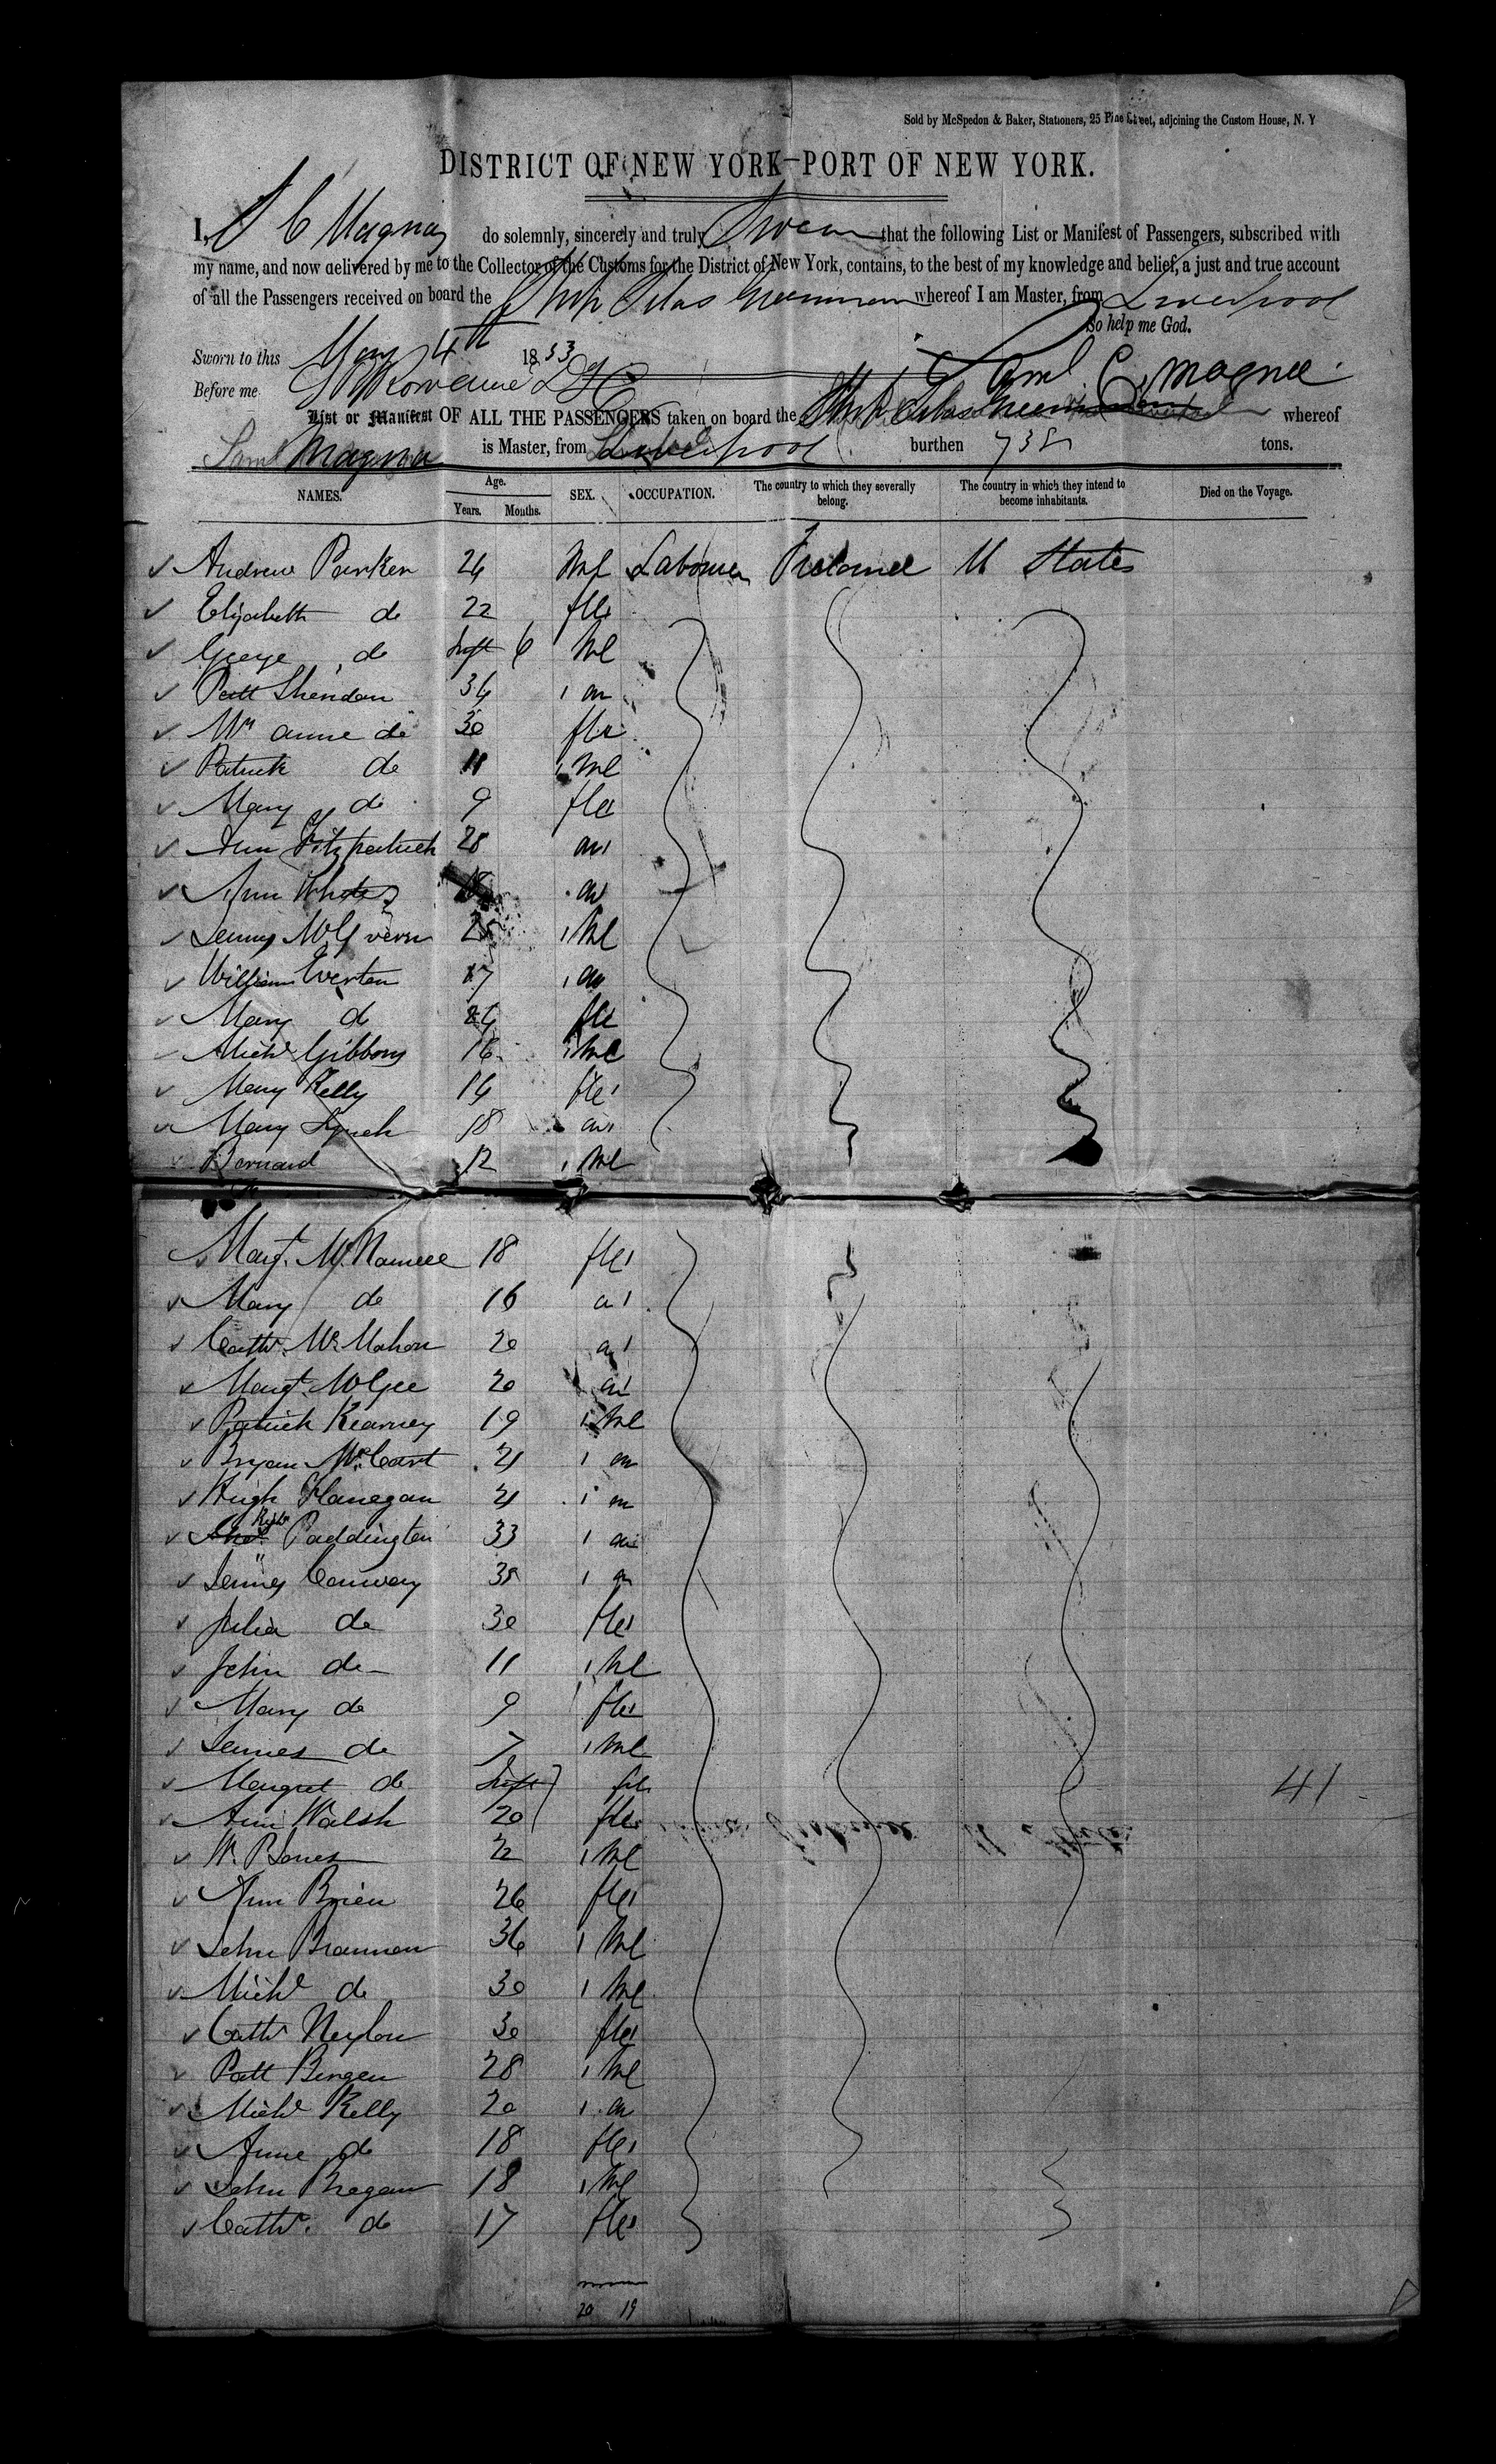 Sold by McSpedon & Baker, Stationers, 25 Pine Street, adjoining the Custom House, N. Y
DISTRICT OF NEW YORK—PORT OF NEW YORK.
I, S C Magnay do solemnly, sincerely and truly Swear that the following List or Manifest of Passengers, subscribed with
my name, and now delivered by me to the Collector of the Customs for the District of New York, contains, to the best of my knowledge and belief, a just and true account
of all the Passengers received on board the Ship Silas Greenman whereof I am Master, from Liverpool
So help me God.
Sworn to this May 4th 1853
Before me Saml C. Magnee
List or Manifest OF ALL THE PASSENGERS taken on board the Ship Silas Greenman whereof
Saml Magna is Master, from Liverpool burthen 738 tons.
NAMES. Age. SEX. OCCUPATION. The country to which they severally The country in which they intend to Died on the Voyage.
Years. Months. belong. become inhabitants.
Andrew Parker 24 Ml Labourer Ireland U States
Elizabeth do 22 fle
George do Inft 6 Ml
Patt Sheridan 34 1 "
Mr anne do 30 fle
Patrick do 11 1 Ml
Mary do 9 fle
Ann Fitzpatrick 28 "
Ann White 18 "
James McGovern 25 1 Ml
William Everton 27 1 "
Mary do 24 fle
Michl Gibbons 16 1 Ml
Mary Kelly 14 fle
Mary Lynch 18 "
Bernard 12 1 Ml
Margt. McNamee 18 fle
Mary do 16 "
Cathe. McMahon 20 "
Margt. McGee 20 "
Patrick Kearney 19 1 Ml
Bryan McCart 21 1 "
Hugh Flanegan 21 1 "
Paddington 33 1 "
James Conway 38 1 "
Julia do 30 fle
John do 11 1 Ml
Mary do 9 fle
James do 7 1 Ml
Margret do Inft fle 41
Ann Walsh 20 fle
W. Bones 22 1 Ml
Ann Brien 26 fle
John Brannon 36 1 Ml
Michl do 30 1 Ml
Cathe Neylon 30 fle
Patt Bergen 28 1 Ml
Michl Kelly 20 1 "
Anne do 18 fle
John Bregan 18 1 Ml
Cathe. do 17 fle
20 19